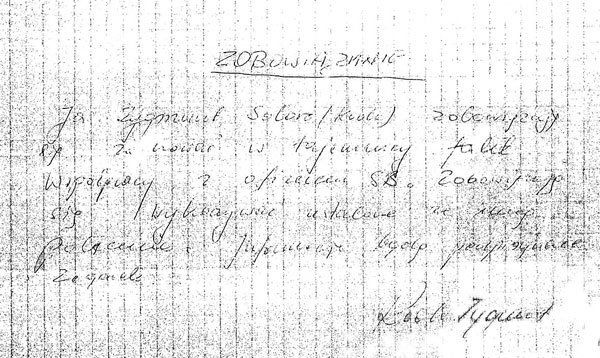 ZOBOWIĄZANIE
Ja Zygmunt Solorz (Krok) zobowiązuję
się zachować w tajemnicy fakt
współpracy z oficerem SB. Zobowiązuję
się wykonywać ustalone ze mną
polecenia. Informacje będę podpisywał
Zegarek
Krok Zygmunt